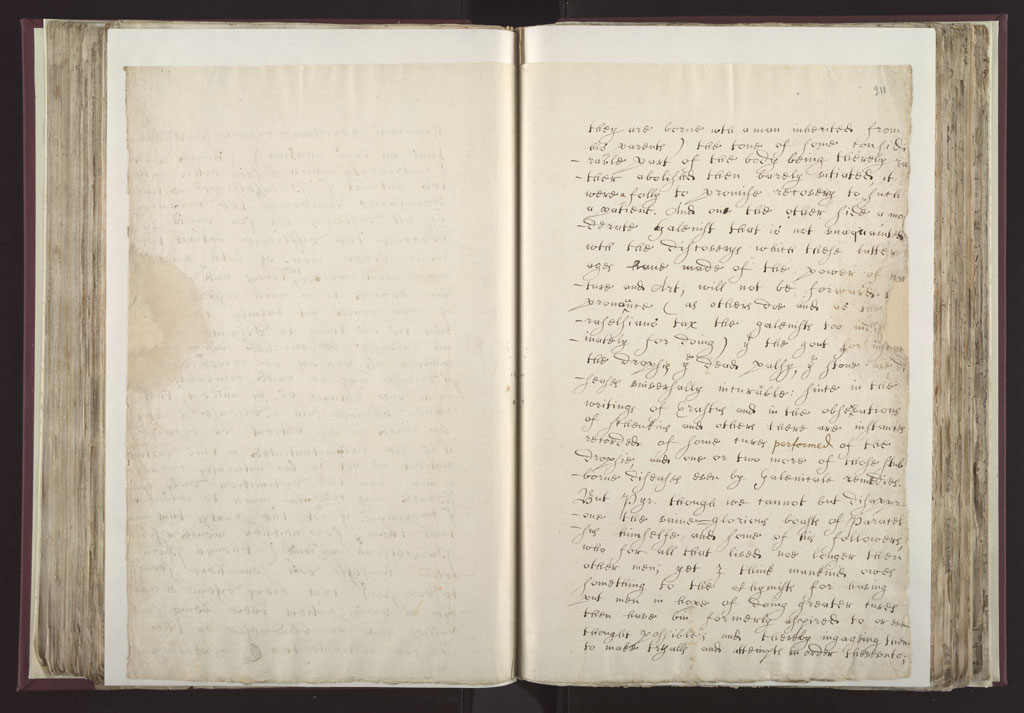 211
they are borne wth a man inherited from
his parents) the tone of some conside
-rable part of the body being thereby ra
-ther abolish'd then barely vitiated, it
were a folly to promise recovery to such
a patient. And one the other side a mo
-derate Galenist that is not unaquainted
wth the discoverys which these latter
ages have made of the power of na
-ture and Art, will not be forward
pronounce (as others doe and as the
-rahelsians tax the Galenists too
-mately for doing) yt the gout
the dropsy ye dead palsy, ye stone are di
-seases universally incurable: since in the
writings of Erastus and in the observations
of Schenkius and others there are instances
recorded of some cures performed of the
Dropsie, and one or two more of those stub
-borne diseases even by Galenicale remedies.
But Pyr. though we cannot but disappr
-ove the vaine-glorious boasts of Paracel
-sus himselfe and some of his followers,
who for all that lived noe longer then
other men; yet I think mankind owes
something to the Chymists for having
put men in hope of doing greater cures
then have bin formerly aspired to or even
thought possible; and thereby ingageing them
to make tryalls and attempts in order thereunto;